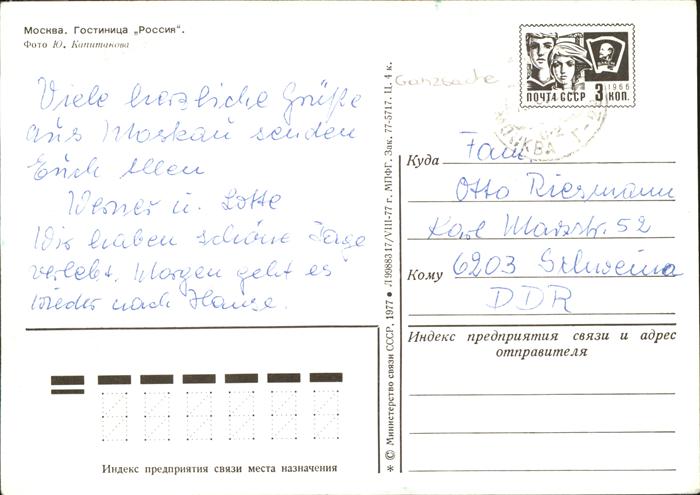 Москва. Гостиница „Россия".
Фото Ю. Капитанова
Viele herzliche Grüße
aus Moskau senden
Euch Allen
Werner u. Lotte
Wir haben schöne Tage
verlebt. Morgen geht es
wieder nach Hause.
Индекс предприятия связи места назначения
* © Министерство связи СССР, 1977 • Л 99883 17/VIII-77 г. МПФГ. Зак. 77-5717. Ц. 4 к.
Ganzsache
1966
ВЛКСМ
ПОЧТА СССР 3 КОП.
МОСКВА
Куда Fam.
Otto Riesmann
Karl Marxstr. 52
Кому 6203 Schweina
DDR
Индекс предприятия связи и адрес
отправителя